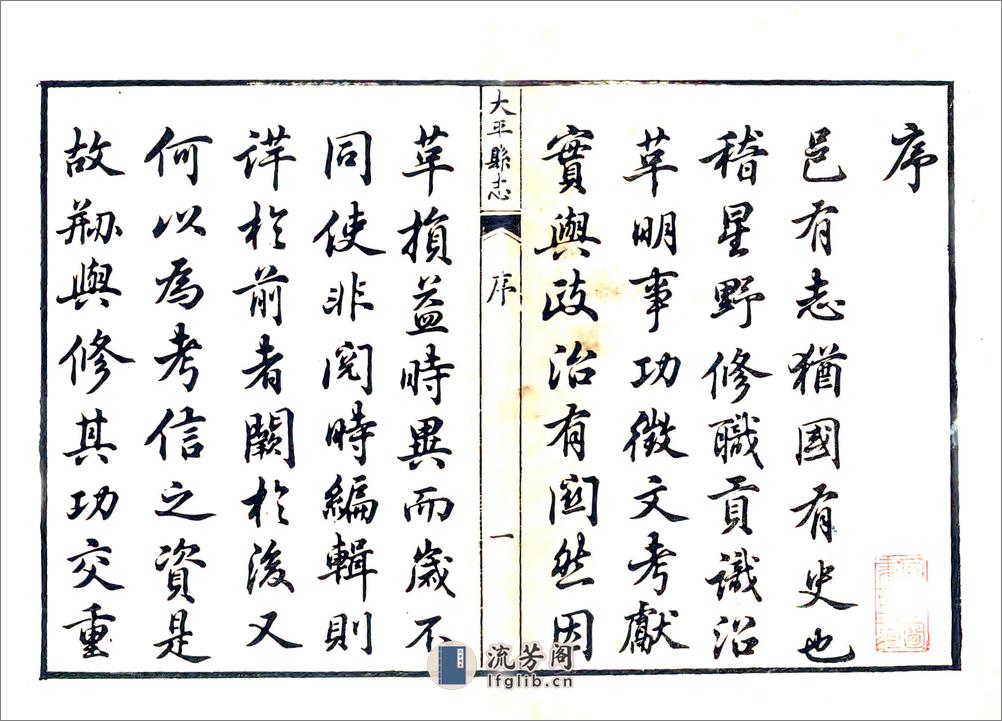 序
邑有志猶國有史也
稽星野修職貢識沿
革明事功徵文考獻
實與政治有関然因
大平縣志
序
一
革損益時異而歲不
同使非閱時編輯則
詳於前者闕於後又
何以為考信之資是
故剏與修其功交重
流芳阁
lfglib.cn